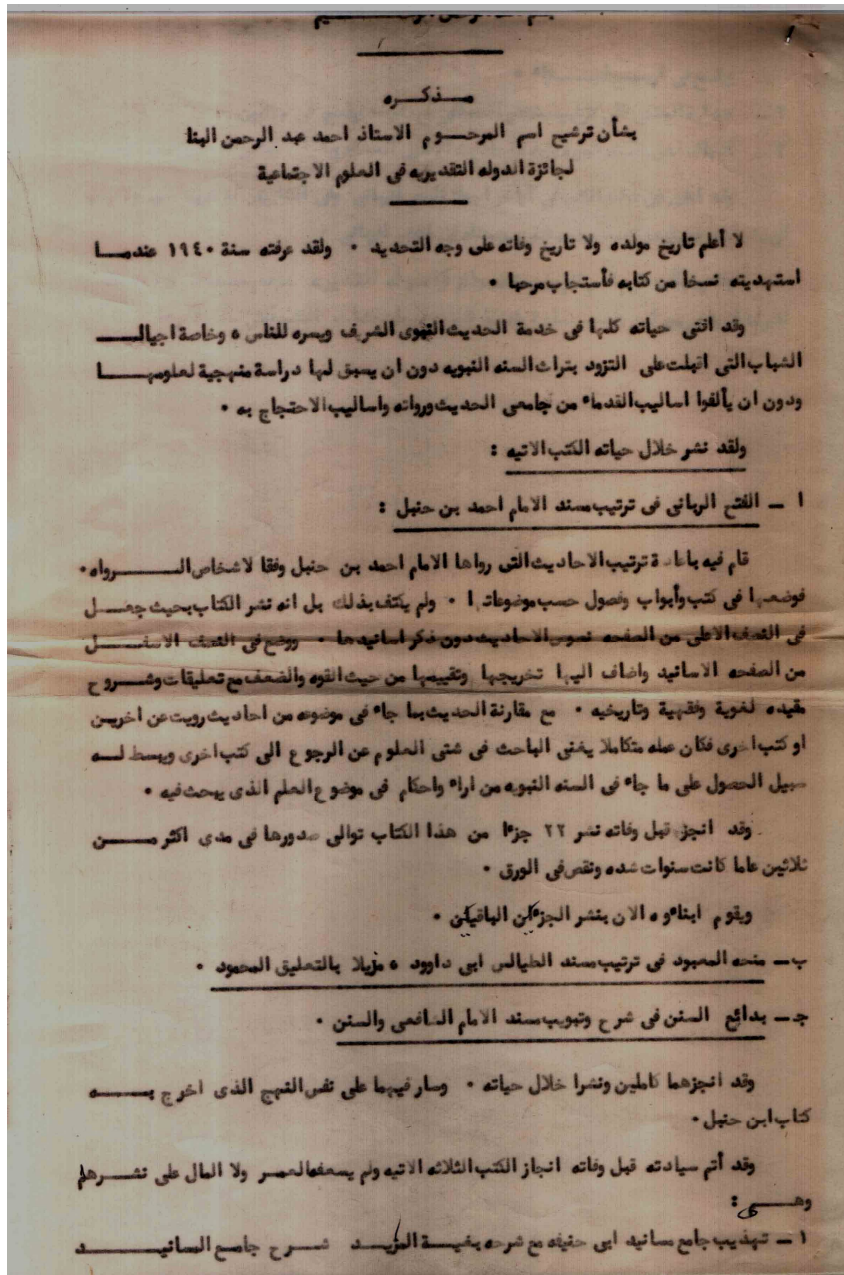 بسم الله الرحمن الرحيم
مذكره
بشأن ترشيح اسم المرحوم الاستاذ احمد عبد الرحمن البنا
لجائزة الدوله التقديريه فى العلوم الاجتماعية
لا أعلم تاريخ مولده ولا تاريخ وفاته على وجه التحديد • ولقد عرفته سنة ١٩٤٠ عندما
استهديته نسخا من كتابه فأستجاب مرحبا •
وقد افنى حياته كلها فى خدمة الحديث النبوى الشريف ويسره للناس ، وخاصة اجيال
الشباب التى اقبلت على التزود بتراث السنه النبويه دون ان يسبق لها دراسة منهجية لعلومها
ودون ان يألفوا اساليب القدماء من جامعى الحديث ورواته واساليب الاحتجاج به •
ولقد نشر خلال حياته الكتب الاتيه :
ا ـ الفتح الربانى فى ترتيب مسند الامام احمد بن حنبل :
قام فيه باعادة ترتيب الاحاديث التى رواها الامام احمد بن حنبل وفقا لاشخاص الرواه •
فوضعها فى كتب وأبواب وفصول حسب موضوعاتها • ولم يكتف بذلك بل انه نشر الكتاب بحيث جعل
فى النصف الاعلى من الصفحه نصوص الاحاديث دون ذكر اسانيدها • ووضع فى النصف الاسفل
من الصفحه الاسانيد واضاف اليها تخريجها وتقييمها من حيث القوه والضعف مع تعليقات وشروح
مفيده لغوية وفقهية وتاريخيه • مع مقارنة الحديث بما جاء فى موضوعه من احاديث رويت عن اخرين
او كتب اخرى فكان عمله متكاملا يغنى الباحث فى شتى العلوم عن الرجوع الى كتب اخرى ويبسط له
سبيل الحصول على ما جاء فى السنه النبويه من اراء واحكام فى موضوع العلم الذى يبحث فيه •
وقد انجز قبل وفاته نشر ٢٢ جزءا من هذا الكتاب توالى صدورها فى مدى اكثر من
ثلاثين عاما كانت سنوات شده ونقص فى الورق •
ويقوم ابناءوه الان بنشر الجزءين الباقيين •
ب ـ منحه المعبود فى ترتيب مسند الطيالس ابى داوود ، مزيلا بالتعليق المحمود •
جـ ـ بدائع السنن فى شرح وتبويب مسند الامام الشافعى والسنن •
وقد انجزهما كاملين ونشرا خلال حياته • وسار فيهما على نفس النهج الذى اخرج به
كتاب ابن حنبل •
وقد أتم سيادته قبل وفاته انجاز الكتب الثلاثه الاتيه ولم يسعفه العمر ولا المال على نشرها
وهى :
١ ـ تهذيب جامع مسانيد ابى حنيفه مع شرحه بغية المزيد شرح جامع المسانيد